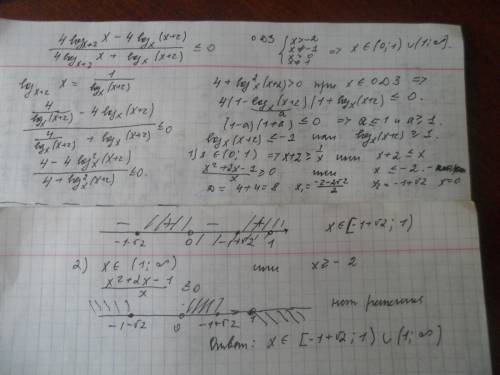 (4 log_{x+2} x − 4 log_x (x+2)) / (4 log_{x+2} x + log_x (x+2)) ≤ 0
ОДЗ { x>-2 x≠-1 x>0 x≠1 => x∈(0;1)∪(1;∞).
log_{x+2} x = 1 / log_x (x+2)
(4 / log_x (x+2) − 4 log_x (x+2)) / (4 / log_x (x+2) + log_x (x+2)) ≤ 0
(4 − 4 log²_x (x+2)) / (4 + log²_x (x+2)) ≤ 0.
4 + log²_x (x+2) > 0 при x∈ОДЗ =>
4(1 − log_x (x+2))(1 + log_x (x+2)) ≤ 0.
a
(1−a)(1+a) ≤ 0 => a ≤ 1 и a ≥ 1.
log_x (x+2) ≤ −1 или log_x (x+2) ≥ 1.
1) x∈(0;1) => x+2 ≥ 1/x или x+2 ≤ x
(x²+2x−1)/x ≥ 0 или x ≤ −2.
D = 4+4 = 8 x₁ = (−2−2√2)/2 x₂ = −1+√2 x=0
− + − +
-1-√2 0 -1+√2 1 x∈[-1+√2; 1)
2) x∈(1;∞) или x ≥ −2
(x²+2x−1)/x ≤ 0
-1-√2 0 -1+√2 1 нет решения
Ответ: x∈[-1+√2; 1)∪(1;∞)